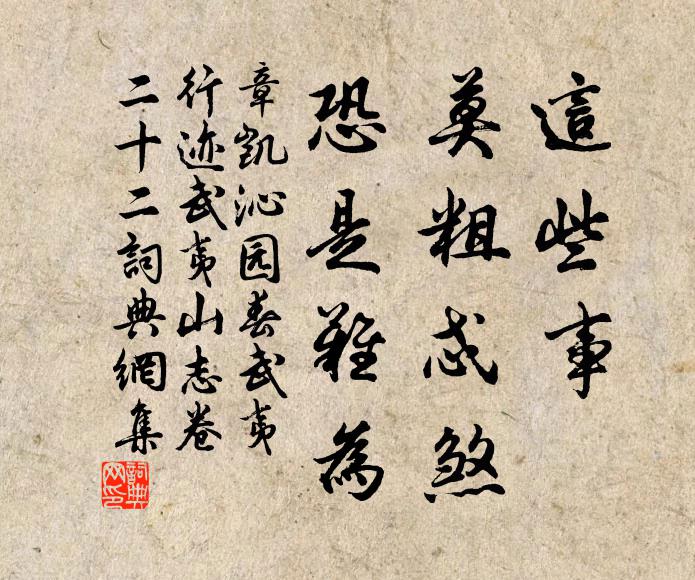 這些事
莫粗忒煞
恐是難為
章凱沁园春武夷
行迹武夷山志卷
二十二詞典網集
詞典
网印